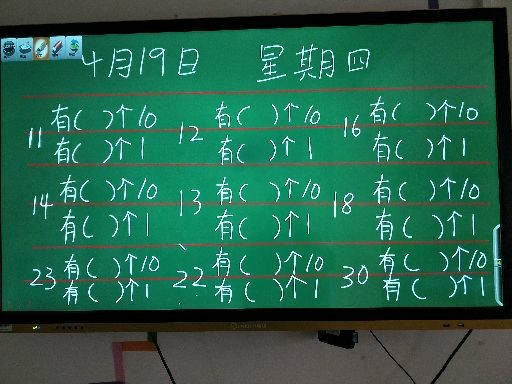 4月19日 星期四
11 有( )个10 12 有( )个10 16 有( )个10
有( )个1 有( )个1 有( )个1
14 有( )个10 13 有( )个10 18 有( )个10
有( )个1 有( )个1 有( )个1
23 有( )个10 22 有( )个10 30 有( )个10
有( )个1 有( )个1 有( )个1